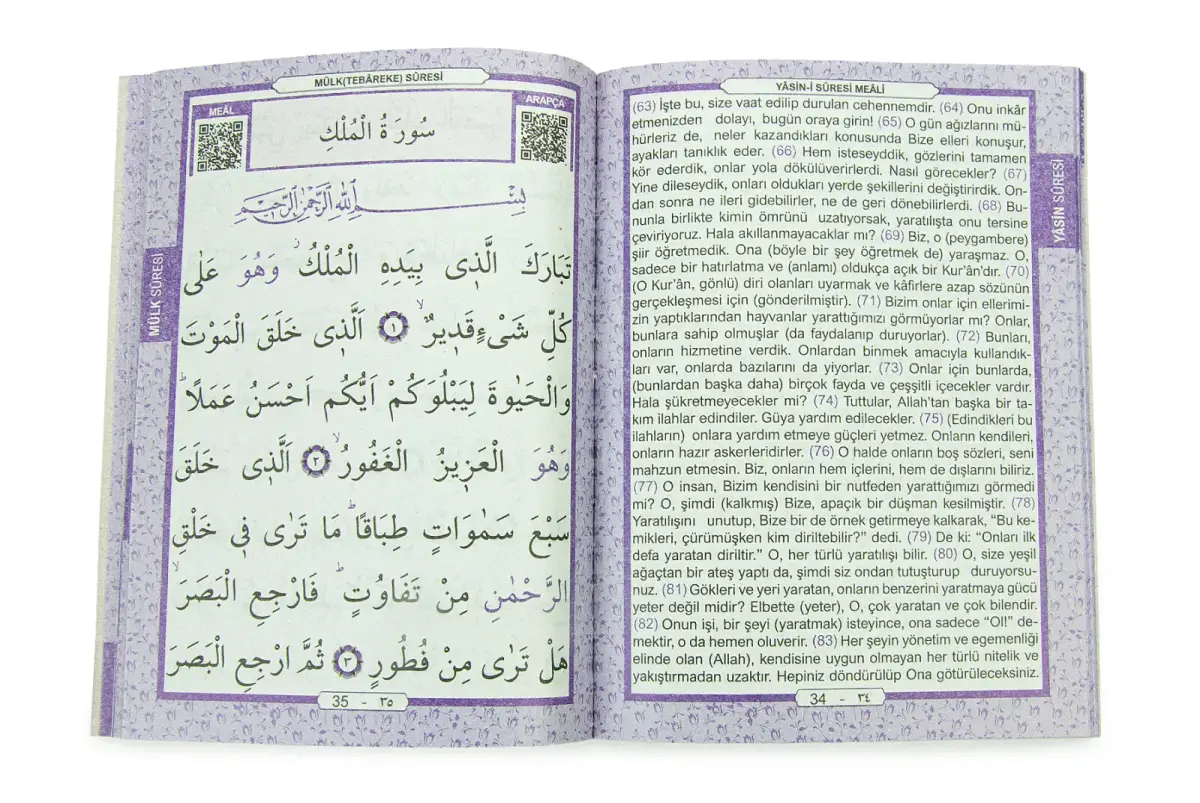 YÂSİN-İ SÛRESİ MEÂLİ
(63) İşte bu, size vaat edilip durulan cehennemdir. (64) Onu inkâr
etmenizden dolayı, bugün oraya girin! (65) O gün ağızlarını mü-
hürleriz de, neler kazandıkları konusunda Bize elleri konuşur,
ayakları tanıklık eder. (66) Hem isteseyddik, gözlerini tamamen
kör ederdik, onlar yola dökülüverirlerdi. Nasıl görecekler? (67)
Yine dileseydik, onları oldukları yerde şekillerini değiştirirdik. On-
dan sonra ne ileri gidebilirler, ne de geri dönebilirlerdi. (68) Bu-
nunla birlikte kimin ömrünü uzatıyorsak, yaratılışta onu tersine
çeviriyoruz. Hala akıllanmayacaklar mı? (69) Biz, o (peygambere)
şiir öğretmedik. Ona (böyle bir şey öğretmek de) yaraşmaz. O,
sadece bir hatırlatma ve (anlamı) oldukça açık bir Kur’ân’dır. (70)
(O Kur’ân, gönlü) diri olanları uyarmak ve kâfirlere azap sözünün
gerçekleşmesi için (gönderilmiştir). (71) Bizim onlar için ellerimi-
zin yaptıklarından hayvanlar yarattığımızı görmüyorlar mı? Onlar,
bunlara sahip olmuşlar (da faydalanıp duruyorlar). (72) Bunları,
onların hizmetine verdik. Onlardan binmek amacıyla kullandık-
ları var, onlarda bazılarını da yiyorlar. (73) Onlar için bunlarda,
(bunlardan başka daha) birçok fayda ve çeşşitli içecekler vardır.
Hala şükretmeyecekler mi? (74) Tuttular, Allah’tan başka bir ta-
kım ilahlar edindiler. Güya yardım edilecekler. (75) (Edindikleri bu
ilahların) onlara yardım etmeye güçleri yetmez. Onların kendileri,
onların hazır askerleridirler. (76) O halde onların boş sözleri, seni
mahzun etmesin. Biz, onların hem içlerini, hem de dışlarını biliriz.
(77) O insan, Bizim kendisini bir nutfeden yarattığımızı görmedi
mi? O, şimdi (kalkmış) Bize, apaçık bir düşman kesilmiştir. (78)
Yaratılışını unutup, Bize bir de örnek getirmeye kalkarak, “Bu ke-
mikleri, çürümüşken kim diriltebilir?” dedi. (79) De ki: “Onları ilk
defa yaratan diriltir.” O, her türlü yaratılışı bilir. (80) O, size yeşil
ağaçtan bir ateş yaptı da, şimdi siz ondan tutuşturup duruyorsu-
nuz. (81) Gökleri ve yeri yaratan, onların benzerini yaratmaya gücü
yeter değil midir? Elbette (yeter), O, çok yaratan ve çok bilendir.
(82) Onun işi, bir şeyi (yaratmak) isteyince, ona sadece “Ol!” de-
mektir, o da hemen oluverir. (83) Her şeyin yönetim ve egemenliği
elinde olan (Allah), kendisine uygun olmayan her türlü nitelik ve
yakıştırmadan uzaktır. Hepiniz döndürülüp Ona götürüleceksiniz.
34 - ٣٤
YÂSİN SÛRESİ
MÜLK(TEBÂREKE) SÛRESİ
MEÂL
ARAPÇA
سُورَةُ الْمُلْكِ
بِسْمِ اللّٰهِ الرَّحْمٰنِ الرَّحِيمِ
تَبَارَكَ الَّذ۪ى بِيَدِهِ الْمُلْكُۘ وَهُوَ عَلٰى
كُلِّ شَىْءٍ قَد۪يرٌۙ ﴿١﴾ اَلَّذ۪ى خَلَقَ الْمَوْتَ
وَالْحَيٰوةَ لِيَبْلُوَكُمْ اَيُّكُمْ اَحْسَنُ عَمَلًاۜ
وَهُوَ الْعَز۪يزُ الْغَفُورُۙ ﴿٢﴾ اَلَّذ۪ى خَلَقَ
سَبْعَ سَمٰوَاتٍ طِبَاقًاۜ مَا تَرٰى ف۪ى خَلْقِ
الرَّحْمٰنِ مِنْ تَفَاوُتٍۜ فَارْجِعِ الْبَصَرَۙ
هَلْ تَرٰى مِنْ فُطُورٍ ﴿٣﴾ ثُمَّ ارْجِعِ الْبَصَرَ
35 - ٣٥
MÜLK SÛRESİ